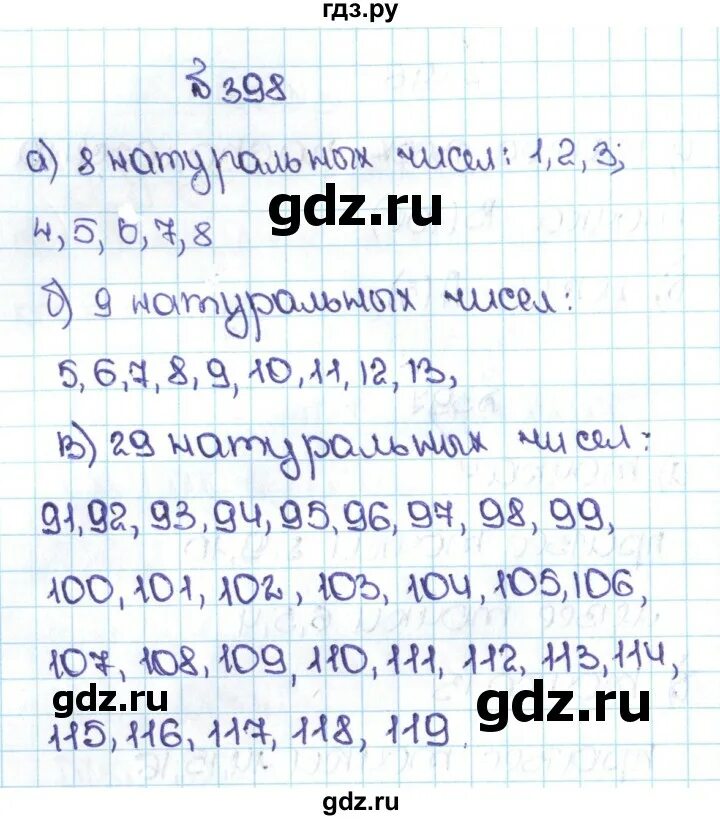 гдз.ру
№ 398
а) 8 натуральных чисел: 1, 2, 3;
gdz.ru
4, 5, 6, 7, 8
б) 9 натуральных чисел:
5, 6, 7, 8, 9, 10, 11, 12, 13,
в) 29 натуральных чисел:
91, 92, 93, 94, 95, 96, 97, 98, 99,
100, 101, 102, 103, 104, 105, 106,
107, 108, 109, 110, 111, 112, 113, 114,
gdz.ru gdz.ru
115, 116, 117, 118, 119.
gdz.ru